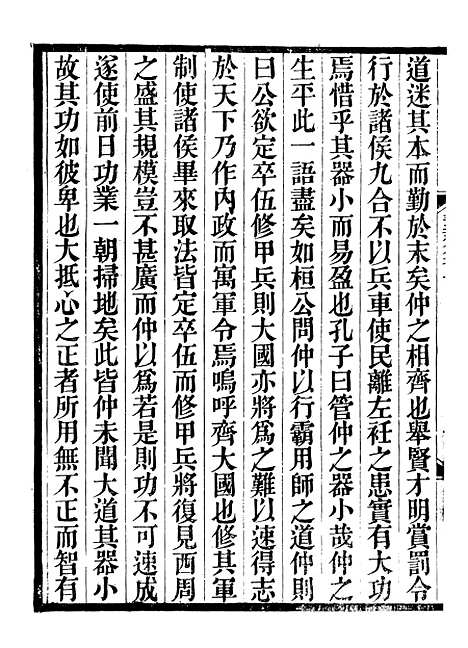 道迷其本而勤於末矣仲之相齊也舉賢才明賞罰令
行於諸侯九合不以兵車使民離左衽之患實有大功
焉惜乎其器小而易盈也孔子曰管仲之器小哉仲之
生平此一語盡矣如桓公問仲以行霸用師之道仲則
曰公欲定卒伍修甲兵則大國亦將為之難以速得志
於天下乃作內政而寓軍令焉嗚呼齊大國也修其軍
制使諸侯畢來取法皆定卒伍而修甲兵將復見西周
之盛其規模豈不甚廣而仲以為若是則功不可速成
遂使前日功業一朝掃地矣此皆仲未聞大道其器小
故其功如彼卑也大抵心之正者所用無不正而智有